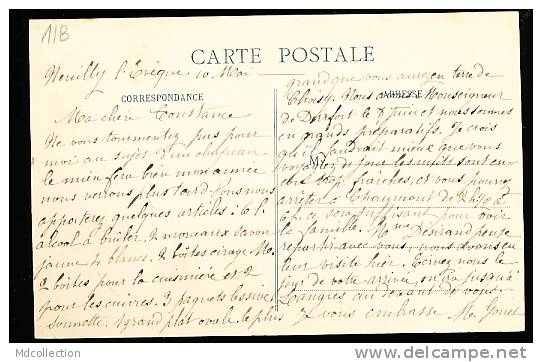 11B
CARTE POSTALE
Neuilly l'Evêque 10 Mai
CORRESPONDANCE
Ma chère Constance
Ne vous tourmentez pas pour
moi au sujet d'un chapeau
le mien fera bien mon année
nous verrons plus tard. Vous nous
apporterez quelques articles : 6 l.
alcool à brûler, 2 morceaux savon
jaune 4 blancs, 2 boîtes cirage
2 boîtes pour la cuisinière et 2
pour les cuivres. 3 paquets lessive
1 grand plat ovale le plus
grand que vous aurez en terre de
Choisy. Nous Monseigneur
ADRESSE
de Durfort le 8 Juin et nous sommes
en grands préparatifs. Je crois
qu'il faudrait mieux que vous
M
voyagiez de jour les nuits sont en-
core trop fraîches, et vous pourrez
arrêter à Chaumont de 2h 9 à
6h ce sera suffisant pour voir
la famille. Mme Désirand pense
repartir avec vous, nous avons eu
leur visite hier. Ecrivez nous le
jour de votre arrivée, on ira jusqu'à
Langres au devant de vous.
Je vous embrasse M.
MDcollection
delcampe.net